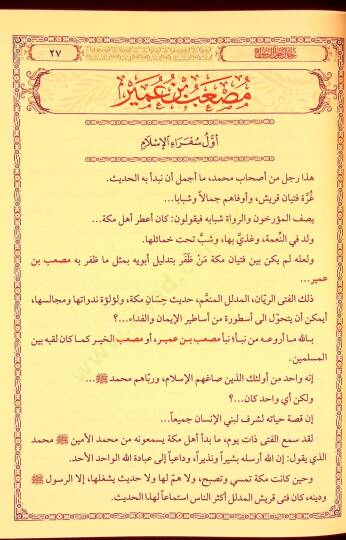 رجال حول الرسول
٢٧
مُصْعَبُ بْنُ عُمَيْر
أَوَّلُ سُفَرَاءِ الإِسْلَامِ
هذا رجل من أصحاب محمد، ما أجمل أن نبدأ به الحديث.
غُرَّة فتيان قريش، وأوفاهم جمالاً وشبابا...
يصف المؤرخون والرواة شبابه فيقولون: كان أعطر أهل مكة...
ولد في النَّعمة، وغذيَ بها، وشبَّ تحت خمائلها.
ولعله لم يكن بين فتيان مكة مَنْ ظَفَر بتدليل أبويه بمثل ما ظفر به مصعب بن
عمير...
ذلك الفتى الريّان، المدلل المنعَّم، حديث حِسَانِ مكة، ولؤلؤة ندواتها ومجالسها،
أيمكن أن يتحوّل الى أسطورة من أساطير الإيمان والفداء...؟
بالله ما أروعه من نبأ؛ نبأ مصعب بن عمير، أو مصعب الخير كما كان لقبه بين
المسلمين.
إنه واحد من أولئك الذين صاغهم الإسلام، وربّاهم محمد ﷺ...
ولكن أي واحد كان...؟
إن قصة حياته لشرف لبني الإنسان جميعاً...
لقد سمع الفتى ذات يوم، ما بدأ أهل مكة يسمعونه من محمد الأمين ﷺ محمد
الذي يقول: إن الله أرسله بشيراً ونذيراً، وداعياً إلى عبادة الله الواحد الأحد.
وحين كانت مكة تمسي وتصبح، ولا همّ لها ولا حديث يشغلها، إلا الرسول ﷺ
ودينه، كان فتى قريش المدلل أكثر الناس استماعاً لهذا الحديث.